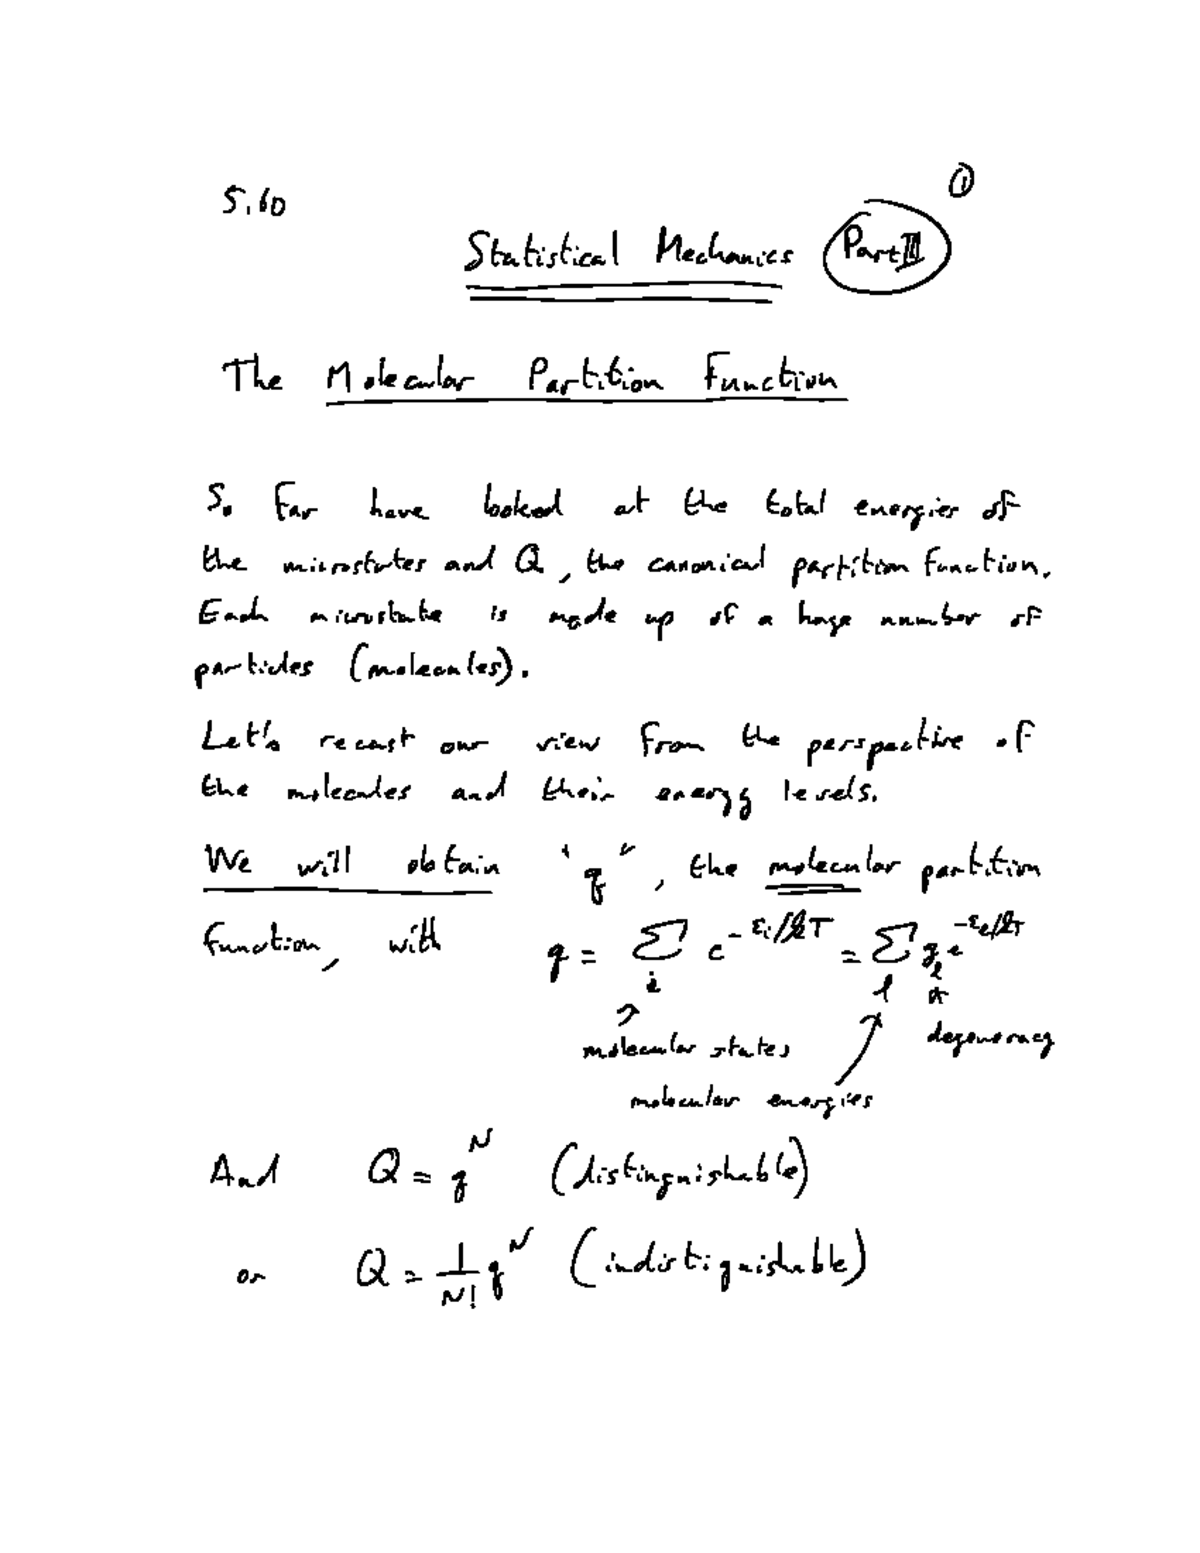 ①
5.60
Statistical Mechanics Part III
The Molecular Partition Function
So far have looked at the total energies of
the microstates and Q, the canonical partition function.
Each microstate is made up of a huge number of
particles (molecules).
Let's recast our view from the perspective of
the molecules and their energy levels.
We will obtain "q", the molecular partition
function, with q = Σ_i e^{-ε_i/kT} = Σ_l g_l e^{-ε_l/kT}
degeneracy
molecular states
molecular energies
And Q = q^N (distinguishable)
or Q = 1/N! q^N (indistiguishable)